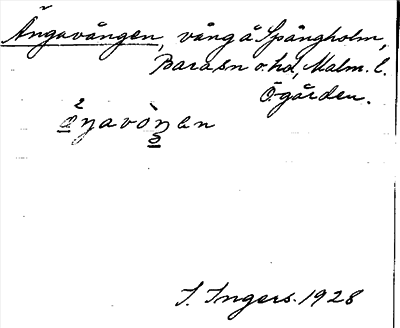 Ängavången, vång å Spångholm,
Bara sn o. hd, Malm. l.
Ö-gården.
I. Ingers. 1928